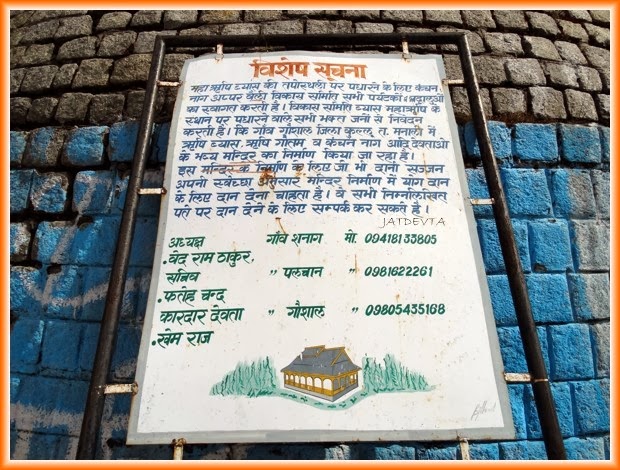 विशेष सूचना
महा ऋषि व्यास की तपोस्थली पर पधारने के लिए कंचन
नाग अप्पर वैली विकास समिति सभी पर्यटकों
का स्वागत करती है। विकास समिति व्यास महाऋषि के
स्थान पर पधारने वाले सभी भक्त जनों से निवेदन
करती है। कि गाँव गौशाल जिला कुल्लू त. मनाली में
ऋषि व्यास, ऋषि गौतम, व कंचन नाग आदि देवताओं
के भव्य मन्दिर का निर्माण किया जा रहा है।
इस मन्दिर के निर्माण के लिए जो भी दानी सज्जन
अपनी स्वेच्छा अनुसार मन्दिर निर्माण में योग दान
के लिए दान देना चाहता है। वे सभी निम्नलिखित
पते पर दान देने के लिए सम्पर्क कर सकते हैं।
JATDEVTA
अध्यक्ष गाँव शनाग मो. 09418133805
• वेद राम ठाकुर,
सचिव " पलचान " 0981622261
• फतेह चन्द
कारदार देवता " गौशाल " 09805435168
• खेम राज